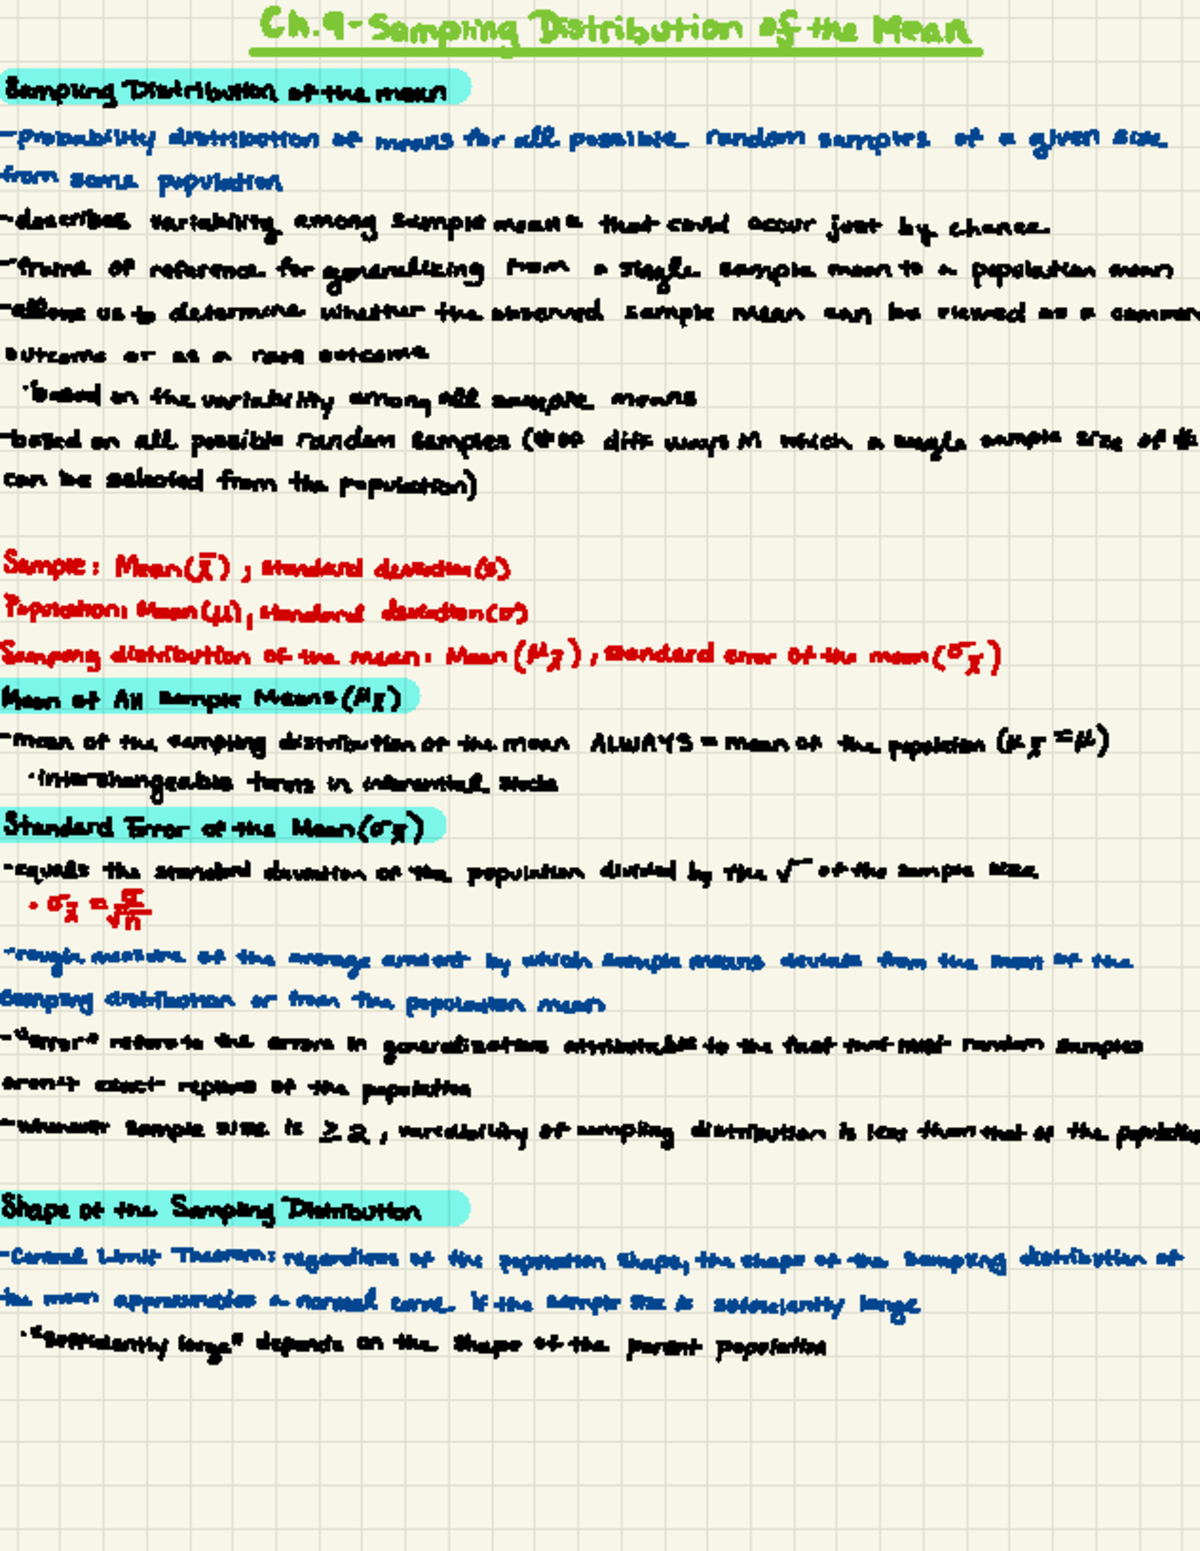 Ch.9-Sampling Distribution of the Mean
Sampling Distribution of the mean
-probability distribution of means for all possible random samples of a given size
from some population
-describes variability among sample means that could occur just by chance
-frame of reference for generalizing from a single sample mean to a population mean
-allows us to determine whether the observed sample mean can be viewed as a common
outcome or as a rare outcome
·based on the variability among all sample means
-based on all possible random samples (# of diff ways in which a single sample size of
can be selected from the population)
Sample: Mean(x̄), standard deviation(s)
Population: Mean(μ), standard deviation(σ)
Sampling distribution of the mean: Mean(μx̄), standard error of the mean(σx̄)
Mean of All Sample Means(μx̄)
-mean of the sampling distribution of the mean ALWAYS = mean of the population (μx̄=μ)
·interchangeable terms in inferential stats
Standard Error of the Mean(σx̄)
-equals the standard deviation of the population divided by the √ of the sample size
· σx̄ = σ/√n
-rough measure of the average amount by which sample means deviate from the mean of the
sampling distribution or from the population mean
-"error" refers to the errors in generalizations attributable to the fact that most random samples
aren't exact replicas of the population
-whenever sample size is ≥2, variability of sampling distribution is less than that of the population
Shape of the Sampling Distribution
-Central Limit Theorem: regardless of the population shape, the shape of the sampling distribution of
the mean approximates a normal curve if the sample size is sufficiently large
·"sufficiently large" depends on the shape of the parent population